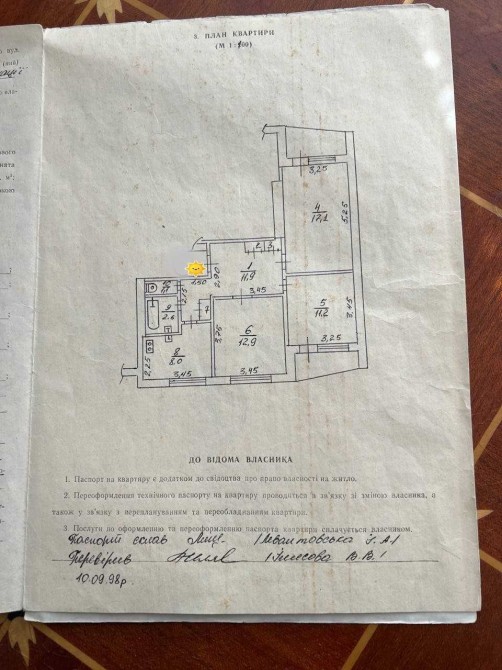 8. ПЛАН КВАРТИРИ
(М 1:100)
3,25
4
17,1
5,25
2 3
1
11,9
2,90
1,50
3,45
10
2,15
9
2,6
7
5
11,2
3,45
3,25
6
12,9
3,75
3,45
8
8,0
2,25
3,45
ДО ВІДОМА ВЛАСНИКА
1. Паспорт на квартиру є додатком до свідоцтва про право власності на житло.
2. Переоформлення технічного паспорту на квартиру проводиться в зв'язку зі зміною власника, а
також у зв'язку з переплануванням та переобладнанням квартири.
3. Послуги по оформленню та переоформленню паспорта квартири сплачується власником.
Паспорт склав
Перевірив В.В.
10.09.98р